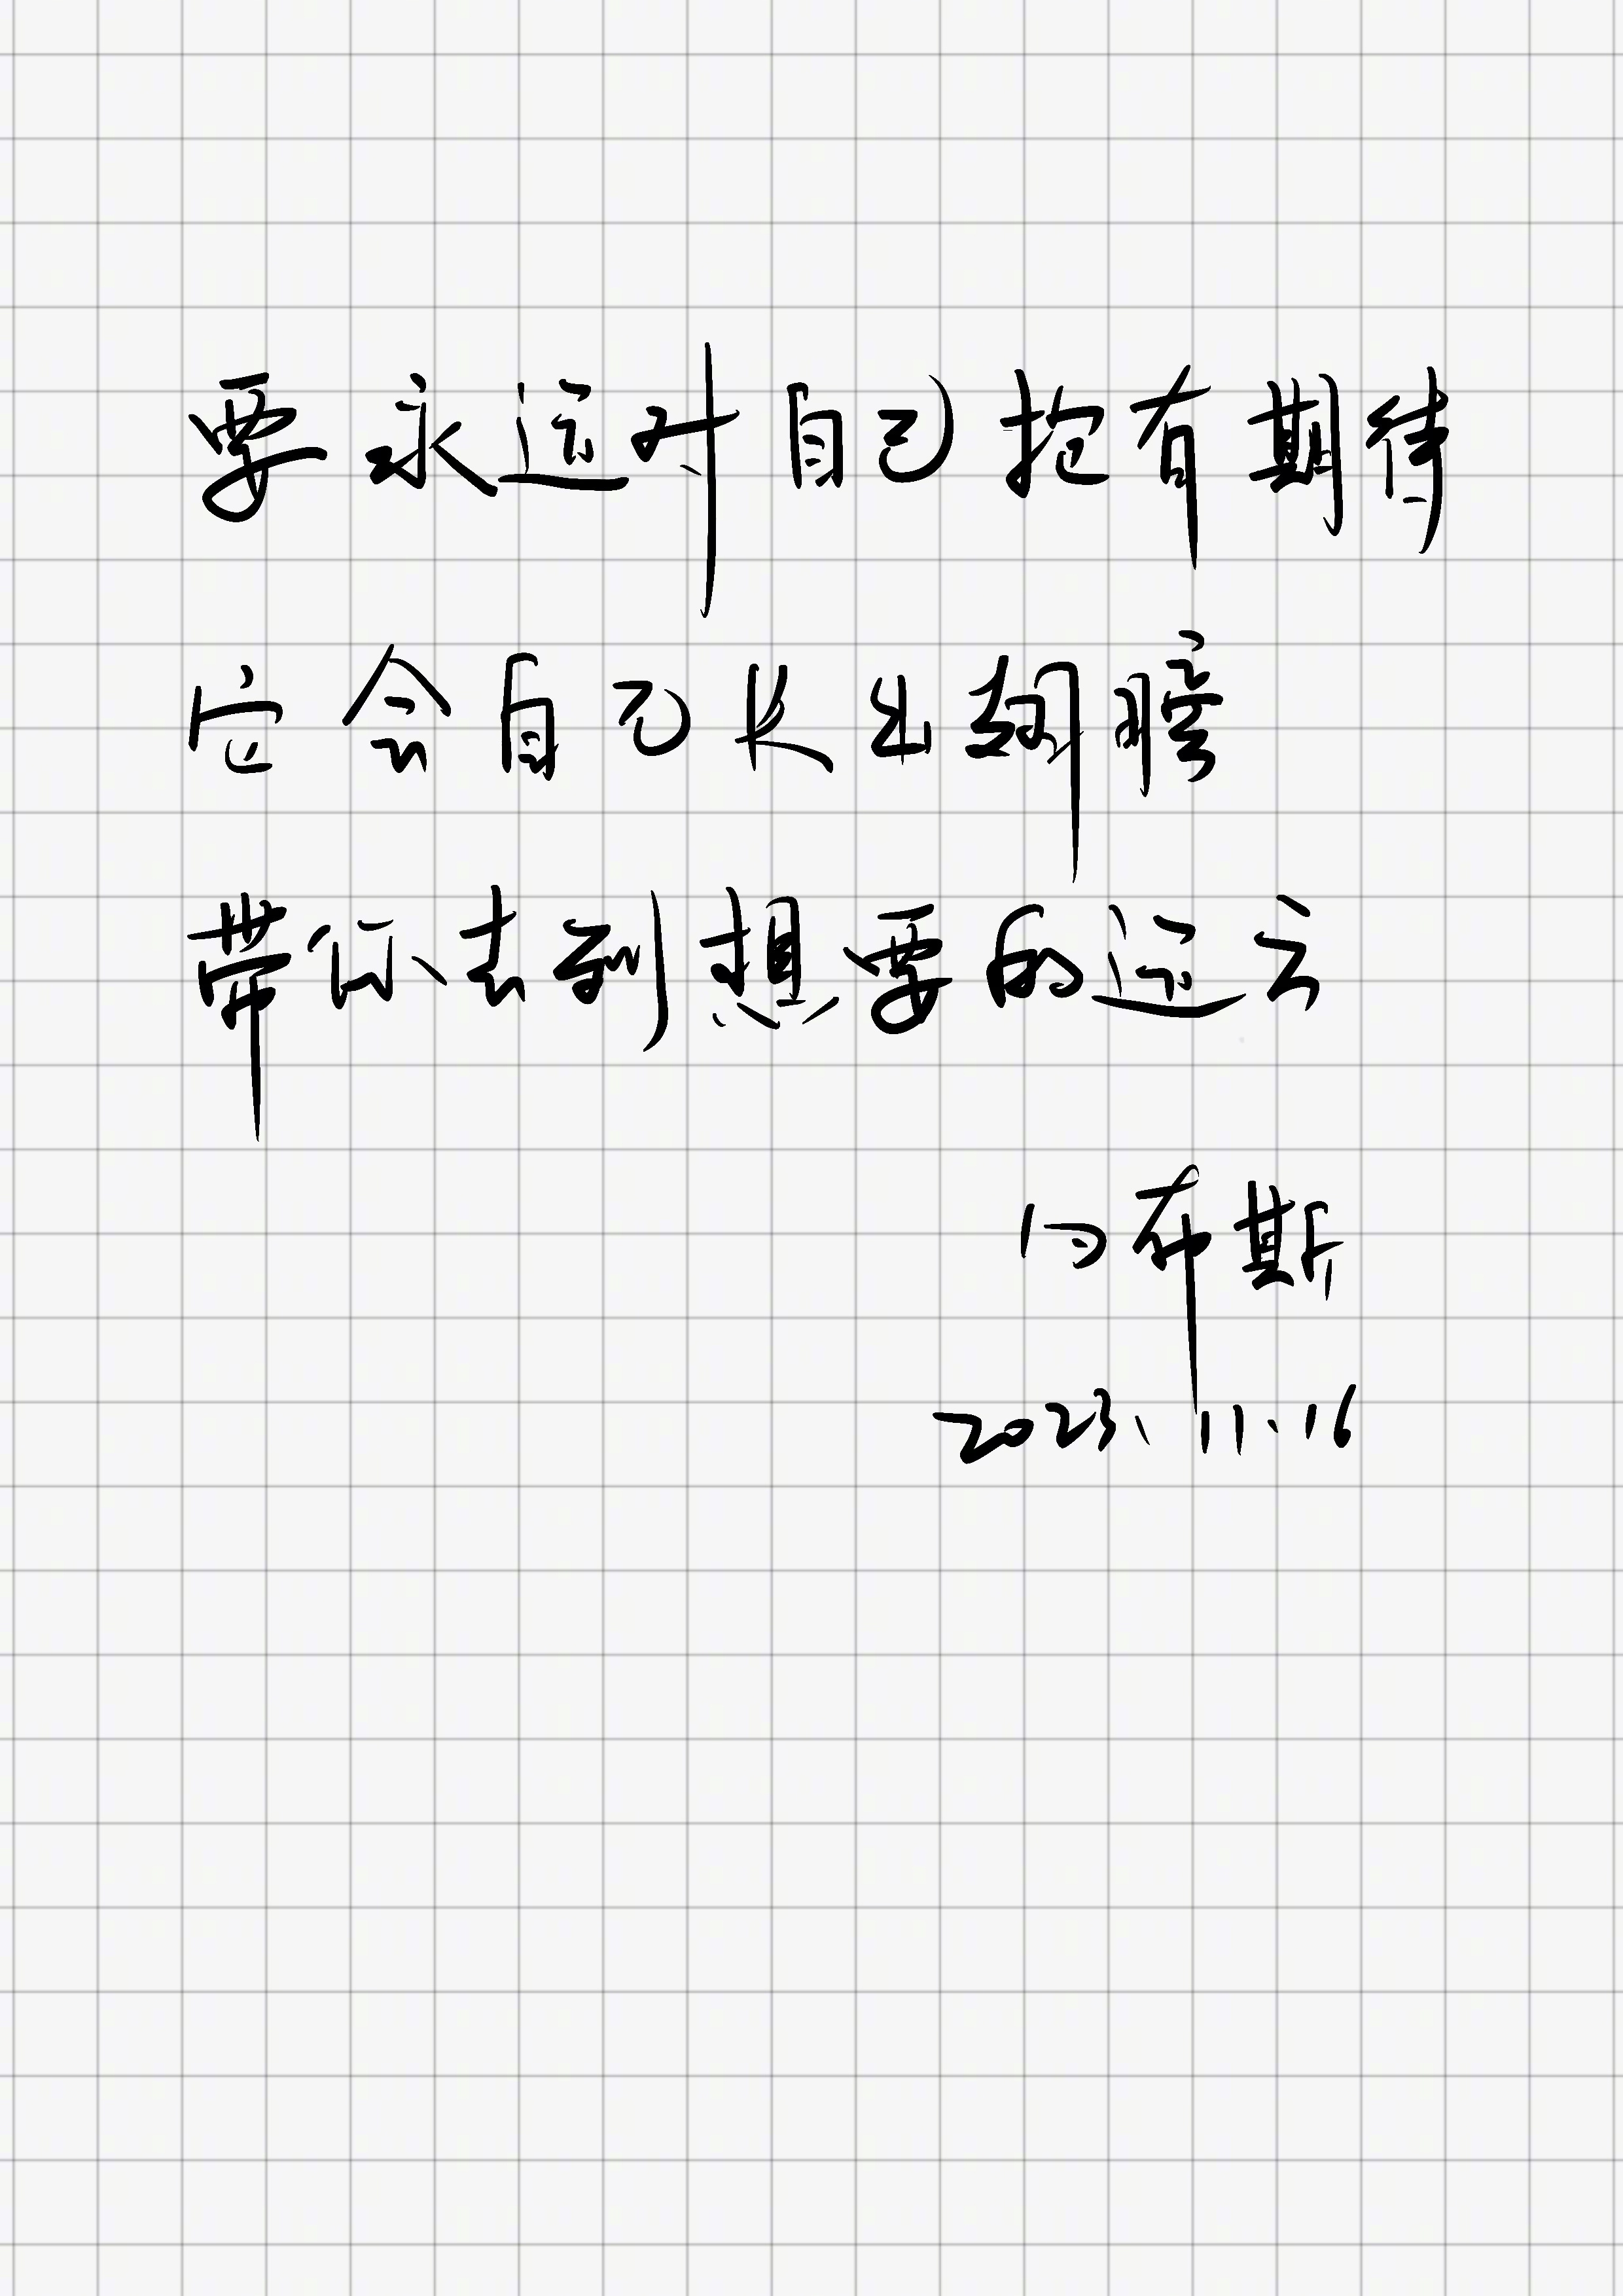 要永远对自己抱有期待
它会自己长出翅膀
带你去到想要的远方
布斯
2023.11.16